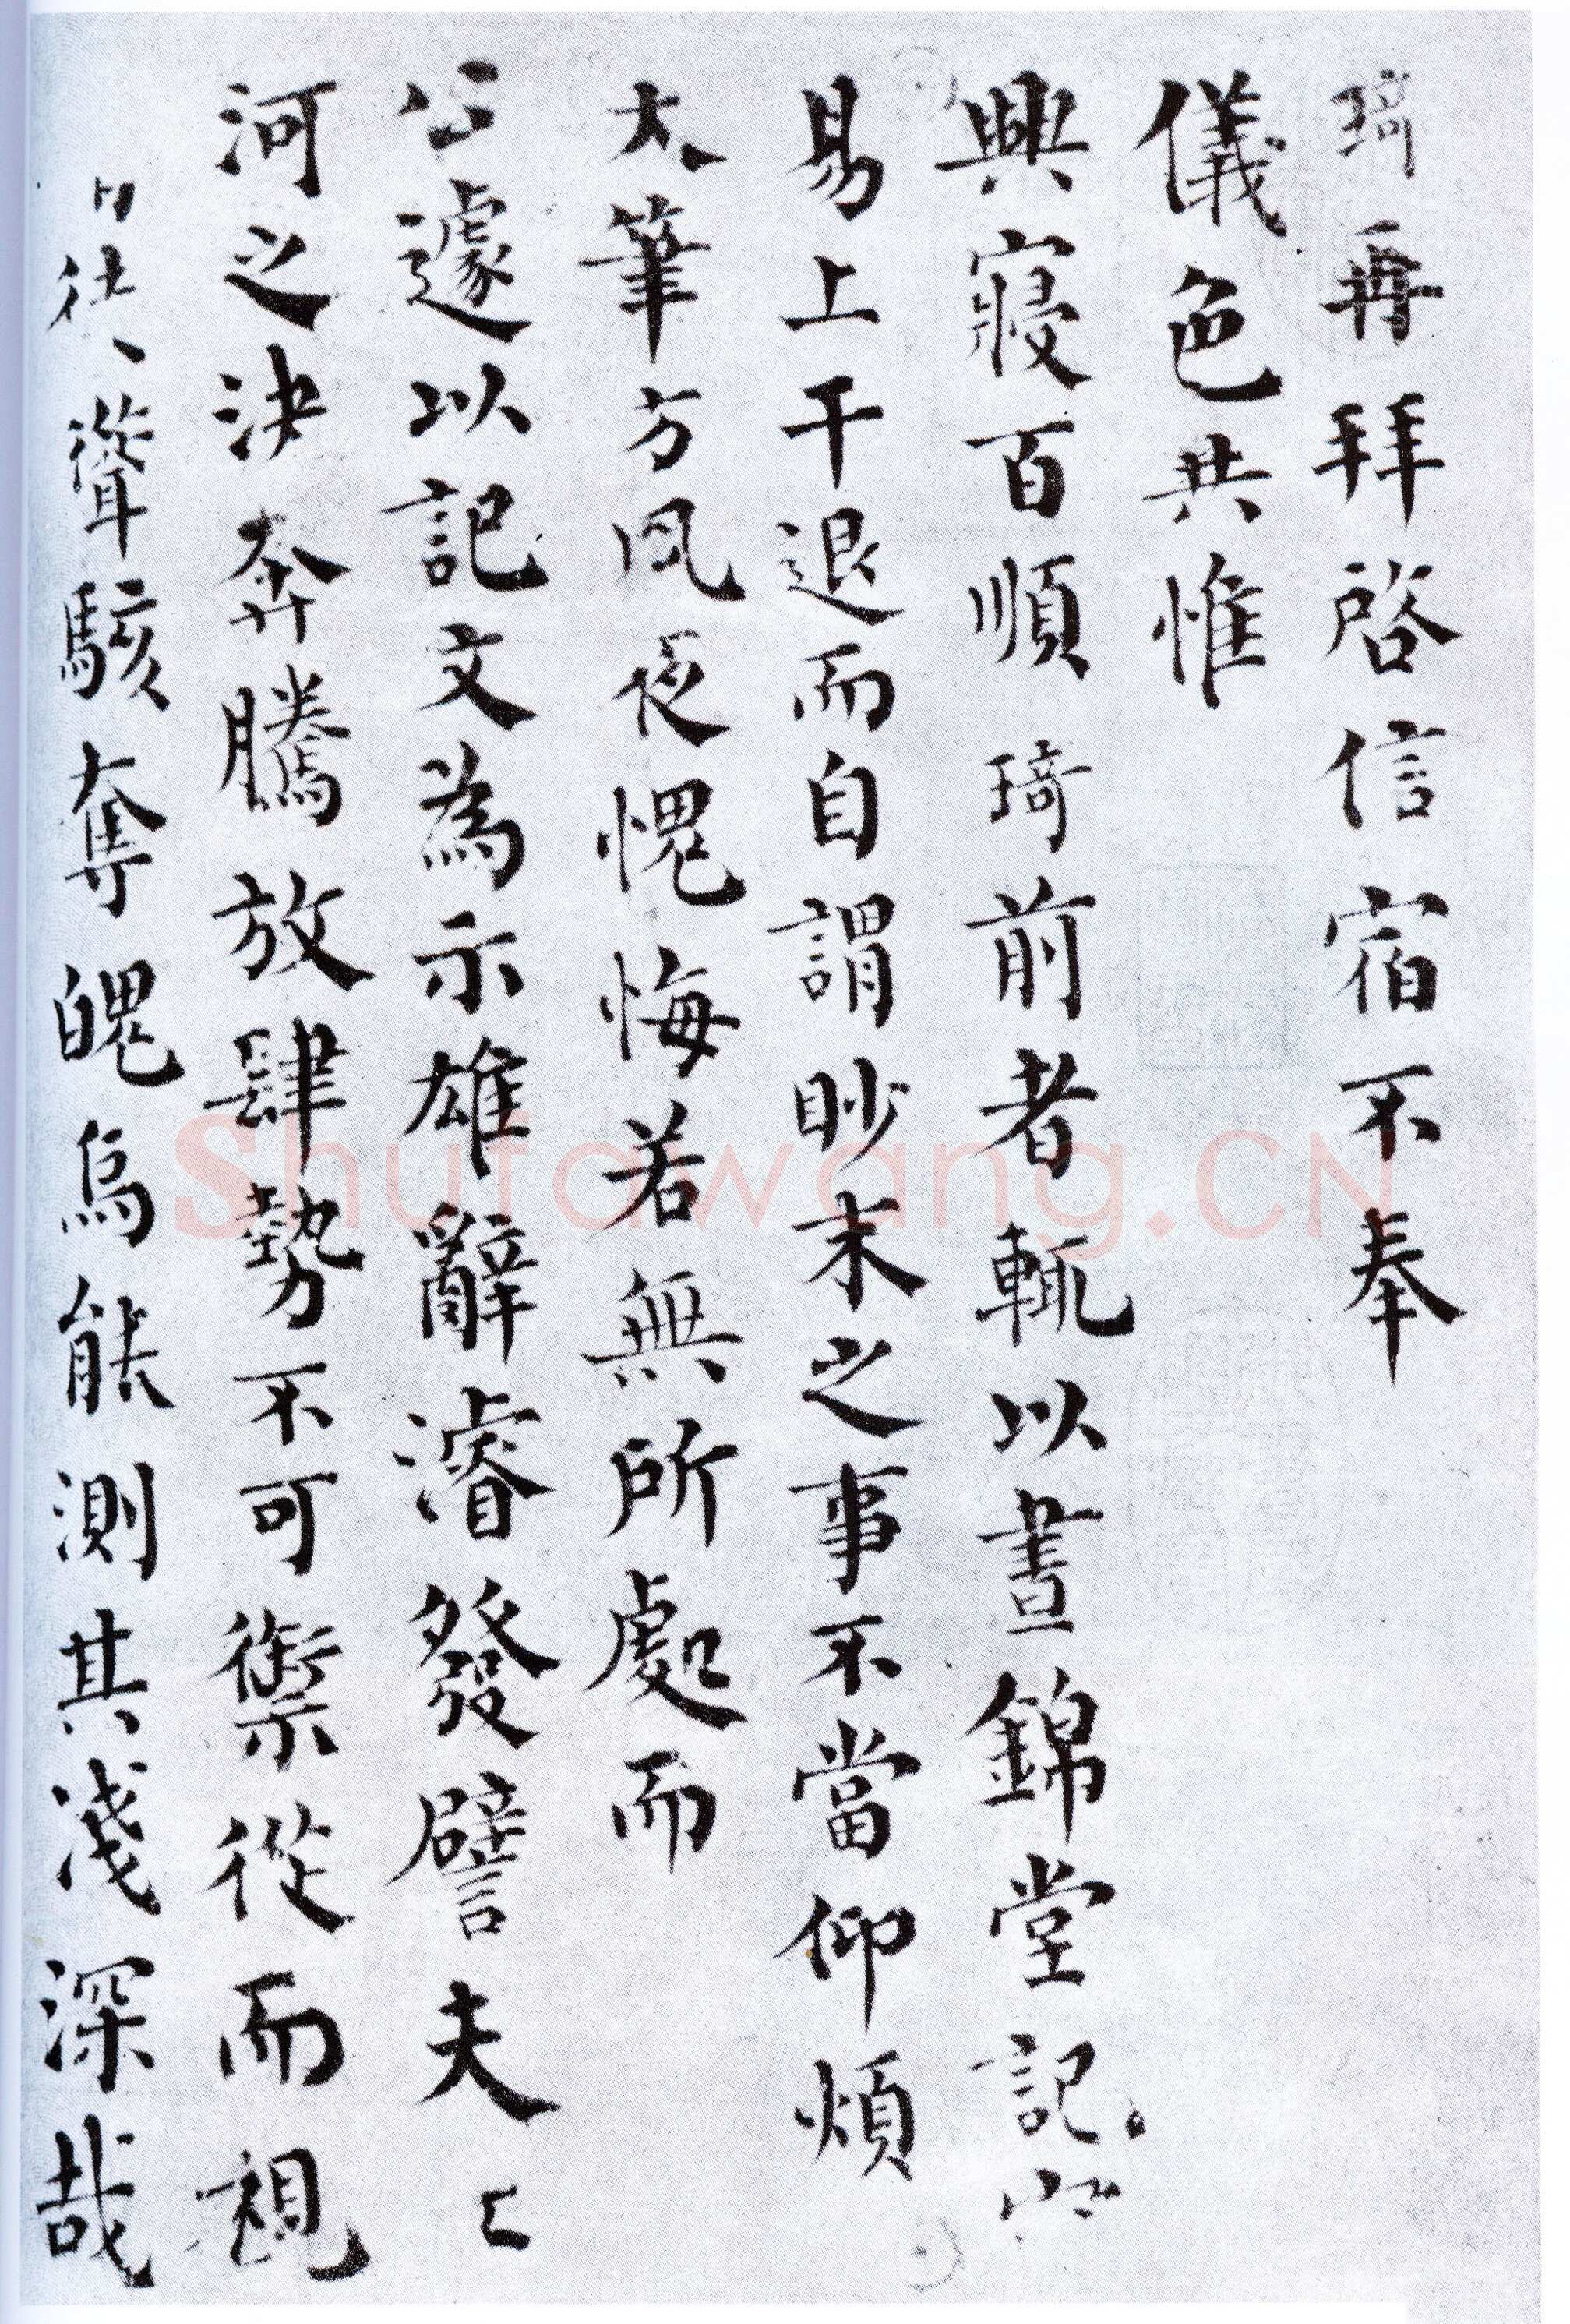 琦再拜啓信宿不奉
儀色共惟
興寢百順琦前者輒以晝錦堂記
易上干退而自謂眇末之事不當仰煩
大筆方夙夜愧悔若無所處而
公遽以記文為示雄辭濬發譬夫
河之決奔騰放肆勢不可禦從而視
徃聳駭奪魄烏能測其淺深哉
Shufawang.CN